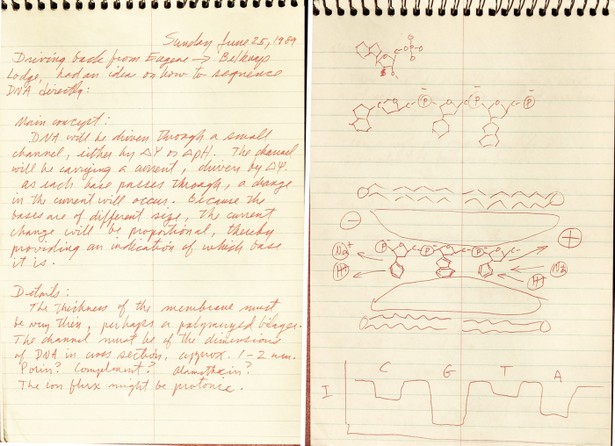 Sunday June 25, 1989
Driving back from Eugene → Belknap
Lodge, had an idea on how to sequence
DNA directly:
Main concept:
DNA will be driven through a small
channel, either by ΔΨ or ΔpH. The channel
will be carrying a current, driven by ΔΨ.
As each base passes through, a change
in the current will occur. Because the
bases are of different size, the current
change will be proportional, thereby
providing an indication of which base
it is.
Details:
The thickness of the membrane must
be very thin, perhaps a polymerized bilayer.
The channel must be of the dimensions
of DNA in cross section, approx. 1-2 nm.
Porin? Complement? Alamethicin?
The ion flux might be protonic.
P
P P P
− +
P P P
Na+ Na
H+ H+
I C G T A